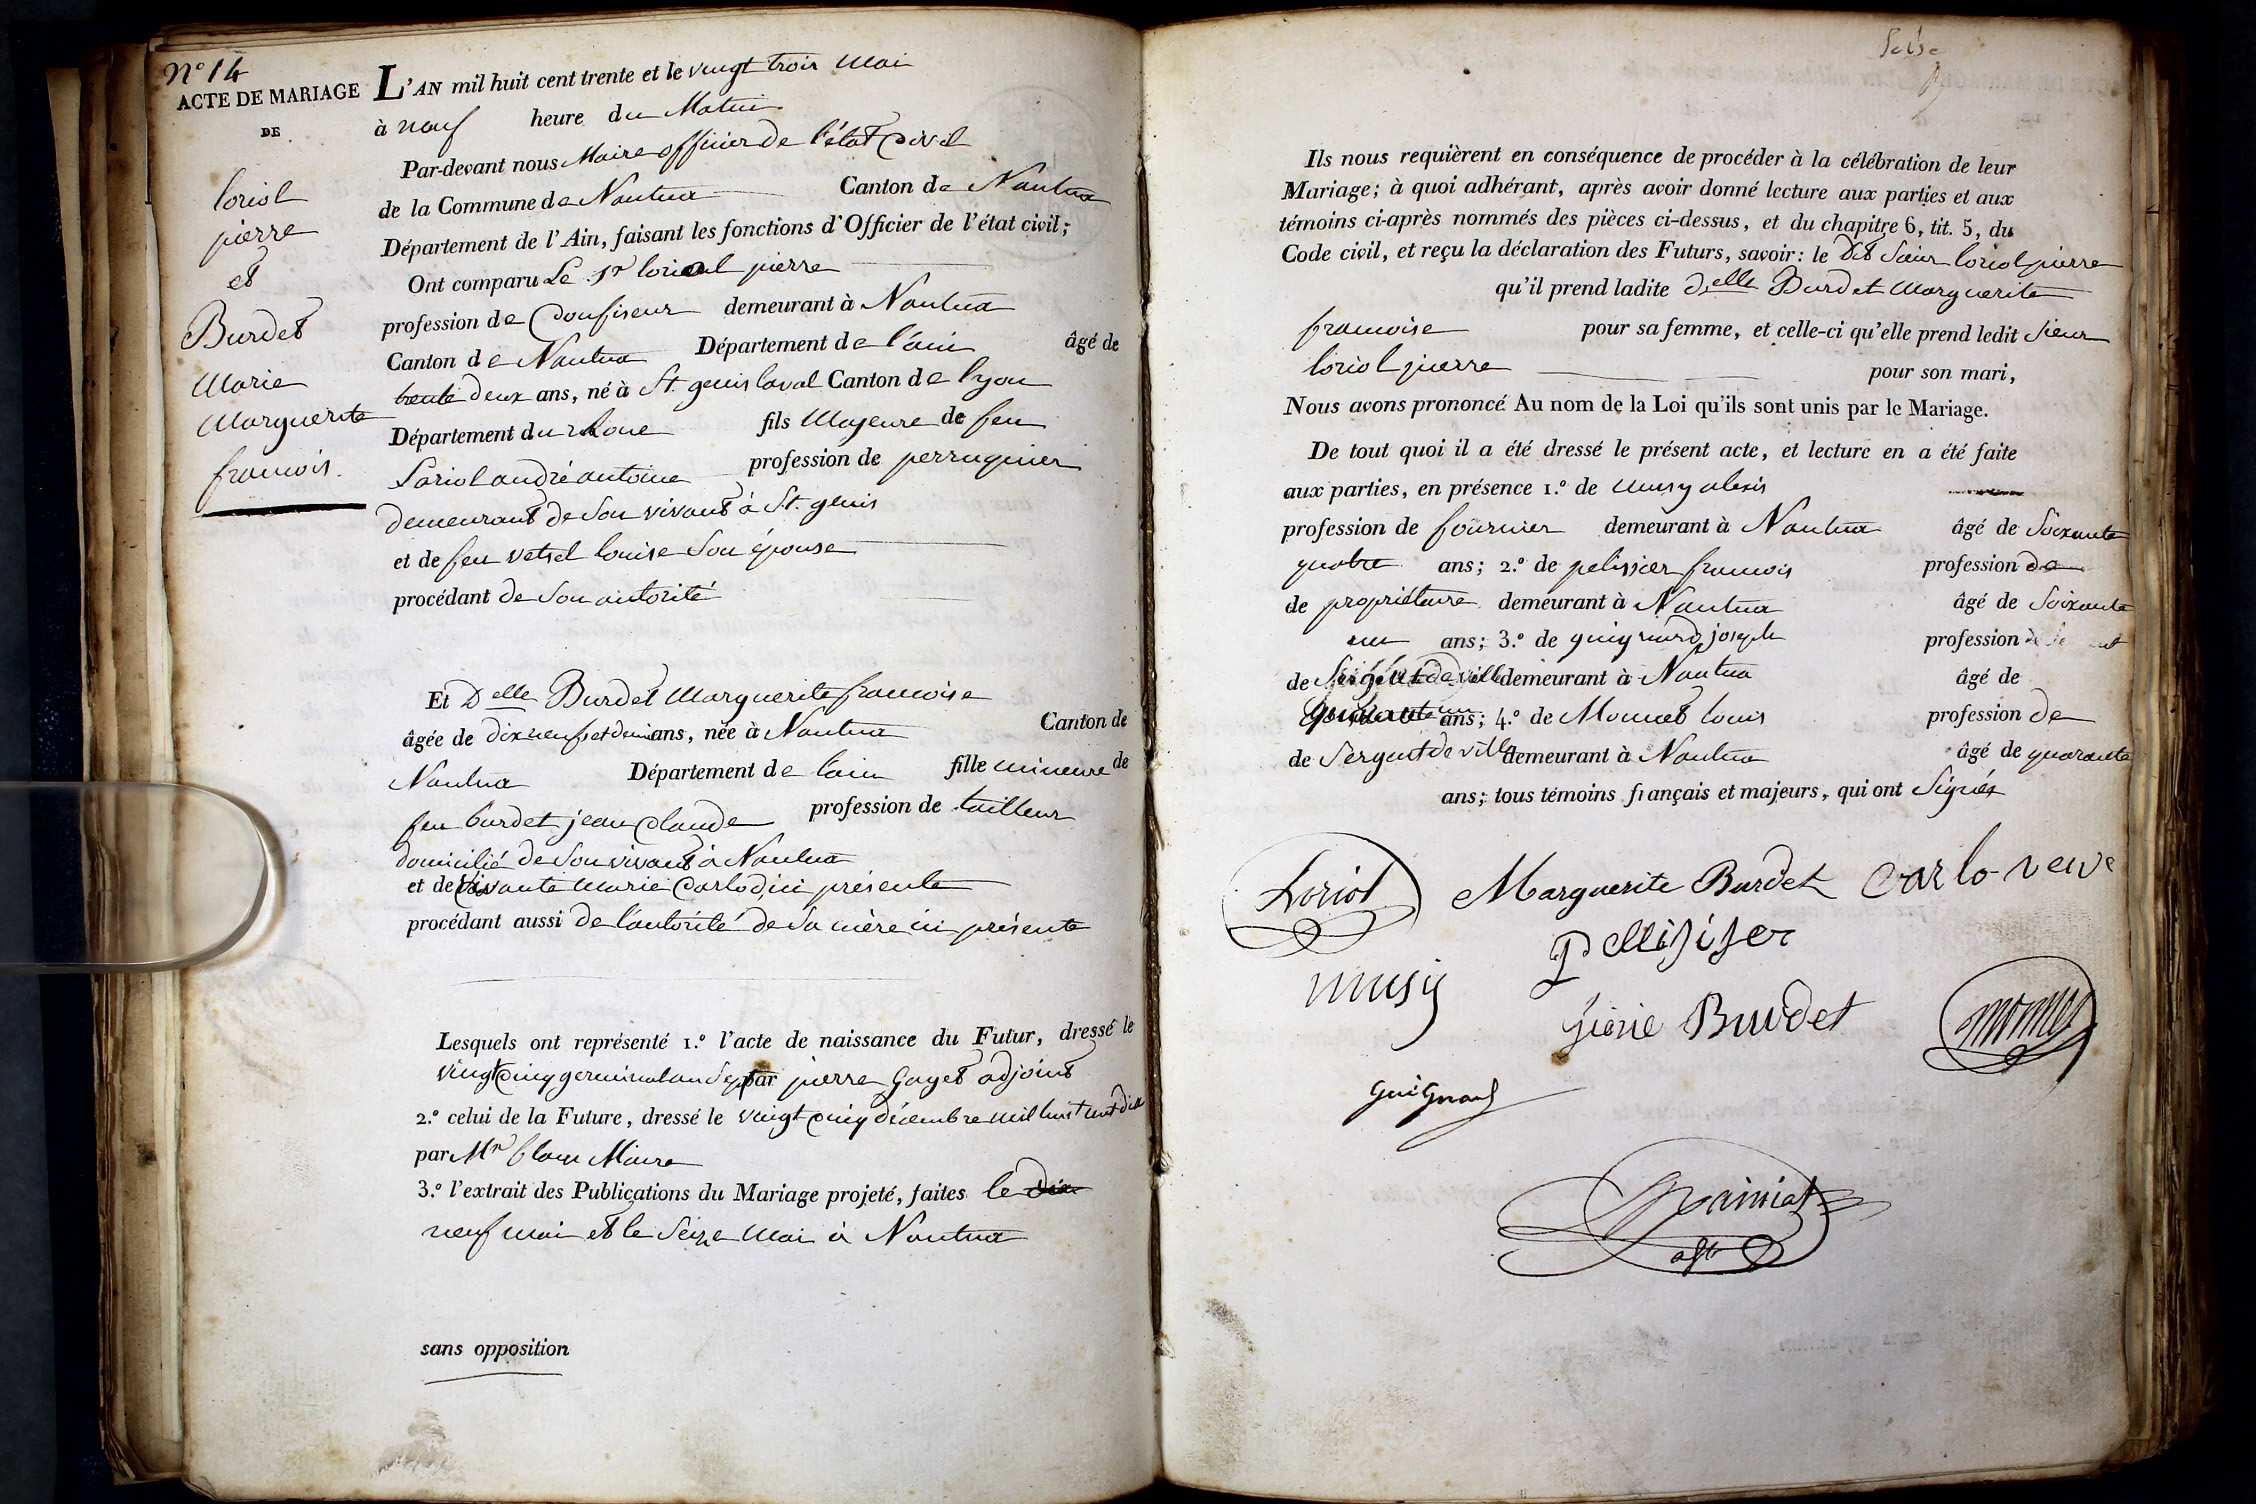 N° 14
ACTE DE MARIAGE
DE
loriol
pierre
et
Burdet
Marie
Marguerite
francois.
L'AN mil huit cent trente et le vingt trois Mai
à neuf heure du Matin
Par-devant nous Maire officier de l'état Civil
de la Commune de Nantua Canton de Nantua
Département de l'Ain, faisant les fonctions d'Officier de l'état civil;
Ont comparu Le Sr loriol pierre
profession de Confiseur demeurant à Nantua
Canton de Nantua Département de l'ain âgé de
trente deux ans, né à St. genis laval Canton de lyon
Département du rhone fils Mageure de feu
Loriol andré antoine profession de perruquier
demeurant de Son vivant à St. genis
et de feu vetsel louise Son épouse
procédant de Son autorité
Et Delle Burdet Marguerite francoise
âgée de dix neuf et demi ans, née à Nantua Canton de
Nantua Département de l'ain fille mineure de
feu burdet jean Claude profession de tailleur
domicilié de Son vivant à Nantua
et de Vivante Marie Carlod ici présente
procédant aussi de l'autorité de Sa mère ici présente
Lesquels ont représenté 1.º l'acte de naissance du Futur, dressé le
vingt Cinq germinal an Sept par pierre Gayet adjoint
2.º celui de la Future, dressé le vingt Cinq décembre mil huit cent dix
par Mr Maire
3.º l'extrait des Publications du Mariage projeté, faites le
neuf mai et le Seize Mai à Nantua
sans opposition
Seise
Ils nous requièrent en conséquence de procéder à la célébration de leur
Mariage; à quoi adhérant, après avoir donné lecture aux parties et aux
témoins ci-après nommés des pièces ci-dessus, et du chapitre 6, tit. 5, du
Code civil, et reçu la déclaration des Futurs, savoir: le dit Sieur loriol pierre
qu'il prend ladite delle Burdet Marguerite
francoise pour sa femme, et celle-ci qu'elle prend ledit Sieur
loriol pierre pour son mari,
Nous avons prononcé Au nom de la Loi qu'ils sont unis par le Mariage.
De tout quoi il a été dressé le présent acte, et lecture en a été faite
aux parties, en présence 1.º de musy alexis
profession de fournier demeurant à Nantua âgé de Soixante
quatre ans; 2.º de pelissier francois profession de
de propriétaire demeurant à Nantua âgé de Soixante
un ans; 3.º de guignard joseph profession de
de Sergent de ville demeurant à Nantua âgé de
ans; 4.º de Monnet louis profession de
de Sergent de ville demeurant à Nantua âgé de quarante
ans; tous témoins français et majeurs, qui ont Signés
Loriol Marguerite Burdet Carlo veuve
Pellisiser
musy
Burdet
monnet
Guignard